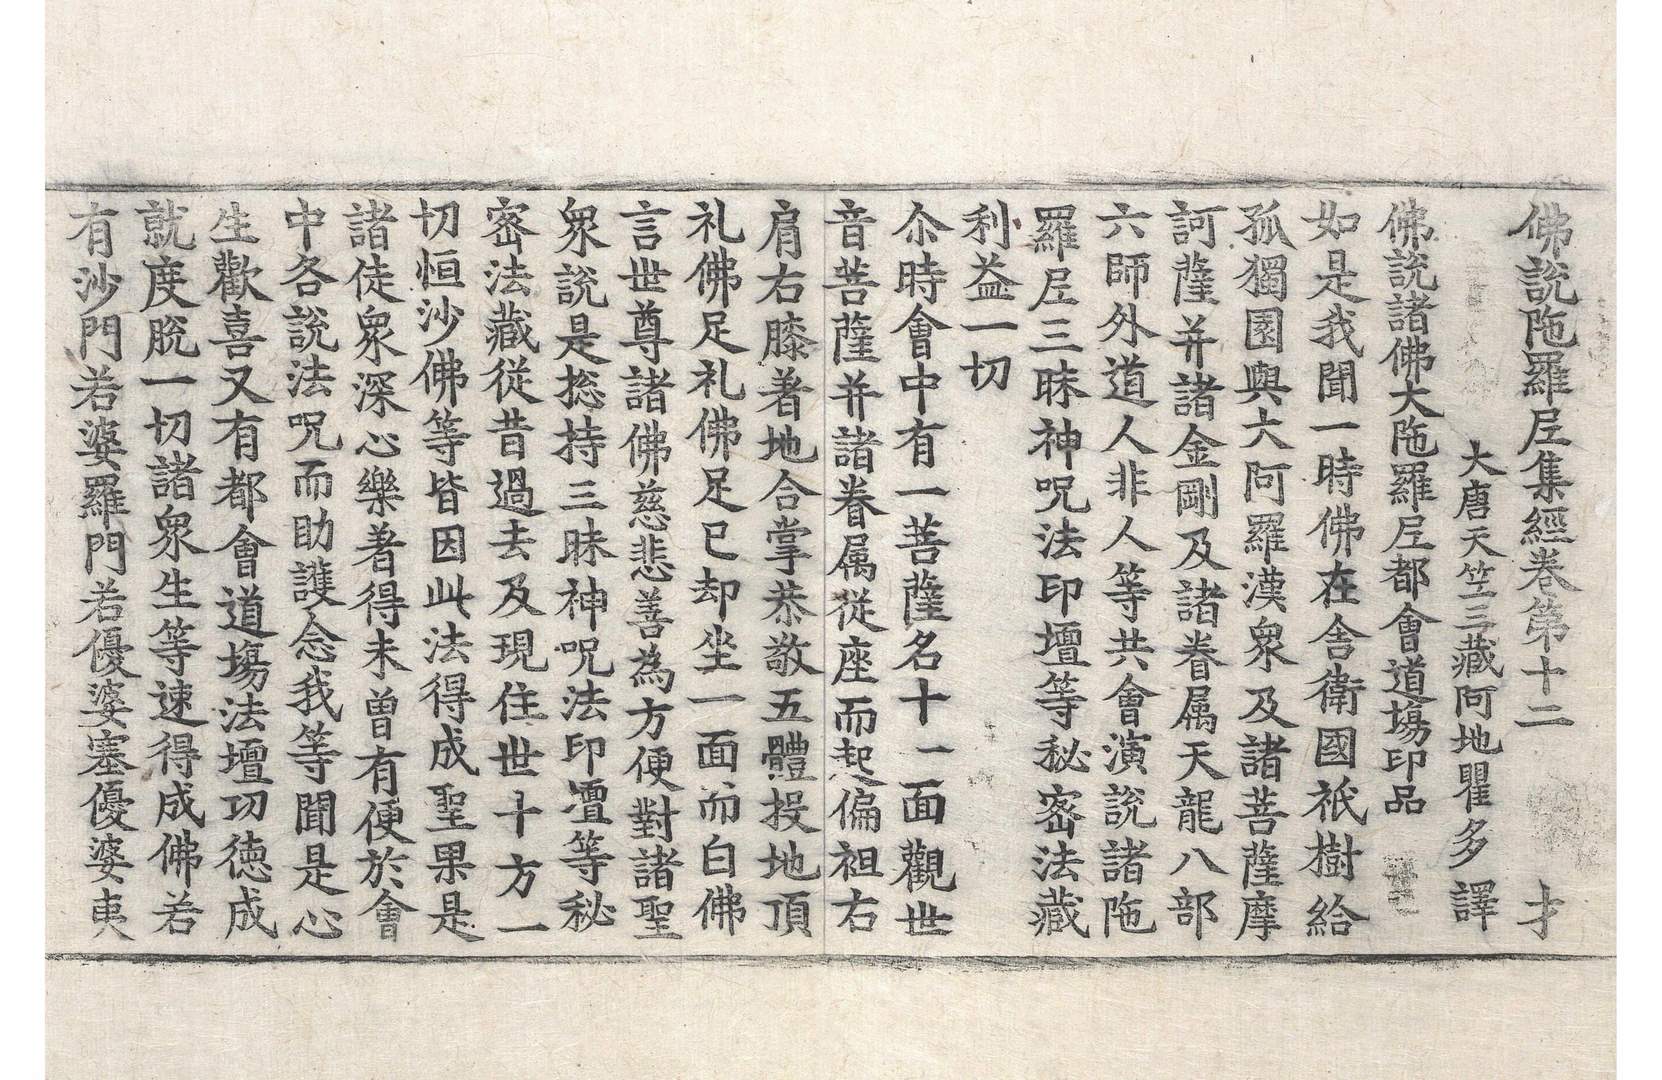 佛說陁羅𡰱集經卷第十二 才
大唐天竺三藏阿地瞿多譯
佛說諸佛大陁羅𡰱都會道場印品
如是我聞一時佛在舍衛國祇樹給
孤獨園與大阿羅漢衆及諸菩薩摩
訶薩并諸金剛及諸眷属天龍八部
六師外道人非人等共會演說諸陁
羅𡰱三昧神呪法印壇等秘密法藏
利益一切
尒時會中有一菩薩名十一面觀世
音菩薩并諸眷属從座而起偏袒右
肩右膝著地合掌恭敬五體投地頂
礼佛足礼佛足已却坐一面而白佛
言世尊諸佛慈悲善為方便對諸聖
衆說是捴持三昧神呪法印壇等秘
密法藏從昔過去及現住世十方一
切恒沙佛等皆因此法得成聖果是
諸徒衆深心樂著得未曾有便於會
中各說法呪而助護念我等聞是心
生歡喜又有都會道場法壇功徳成
就度脫一切諸衆生等速得成佛若
有沙門若婆羅門若優婆塞優婆夷